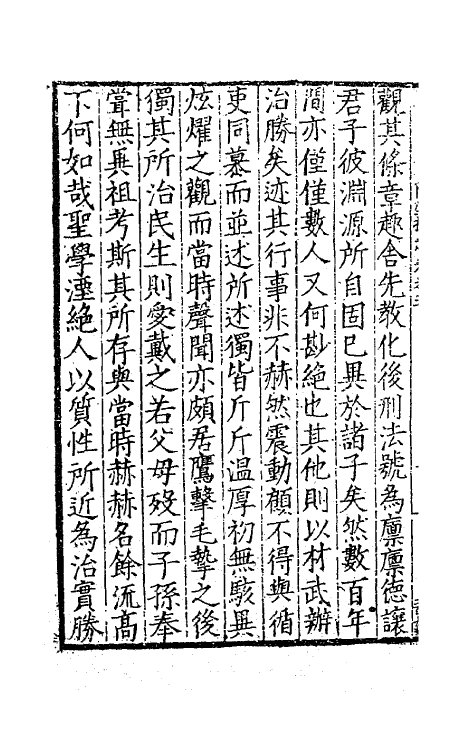 觀其條章趣舍先教化後刑法號為廪廪德讓
君子彼淵源所自固已異於諸子矣然數百年
間亦僅僅數人又何尠絶也其他則以材武辦
治勝矣迹其行事非不赫然震動顧不得與循
吏同慕而並述所述獨皆斤斤温厚初無駭異
炫燿之觀而當時聲聞亦頗居鷹擊毛摯之後
獨其所治民生則愛戴之若父母歿而子孫奉
甞無異祖考斯其所存與當時赫赫名餘流高
下何如哉聖學湮絶人以質性所近為治實勝